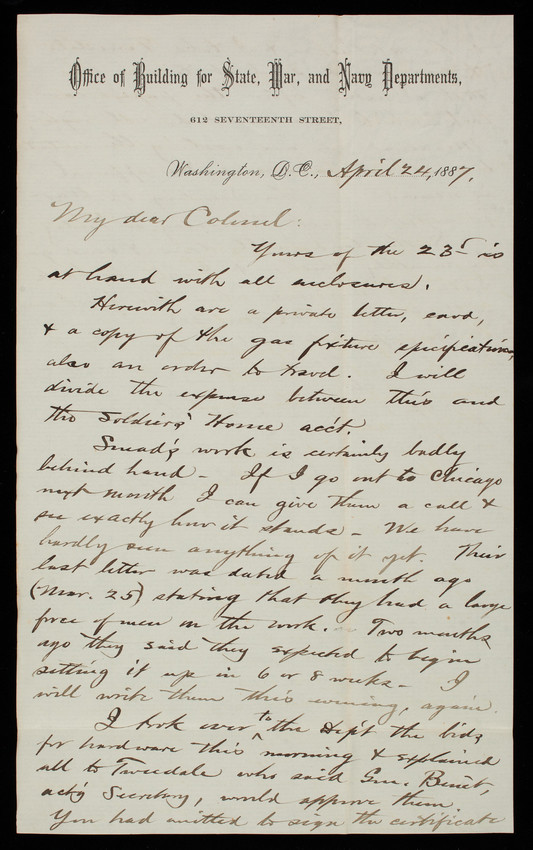 Office of Building for State, War, and Navy Departments,
612 SEVENTEENTH STREET,
Washington, D.C., April 24, 1887.
My dear Colonel:
Yours of the 23d is
at hand with all enclosures.
Herewith are a private letter, card,
& a copy of the gas fixture specifications,
also an order to travel. I will
divide the expense between this and
the Soldiers' Home acct.
Smead's work is certainly badly
behind hand - If I go out to Chicago
next month I can give them a call &
see exactly how it stands - We have
hardly seen anything of it yet. Their
last letter was dated a month ago
(Mar. 25) stating that they had a large
force of men on the work. - Two months
ago they said they expected to begin
setting it up in 6 or 8 weeks - I
will write them this evening, again.
I took over to the Dep't the bids
for hardware this morning & explained
all to Tweedale who said Gen. Benét,
act'g Secretary, would approve them.
You had omitted to sign the certificate